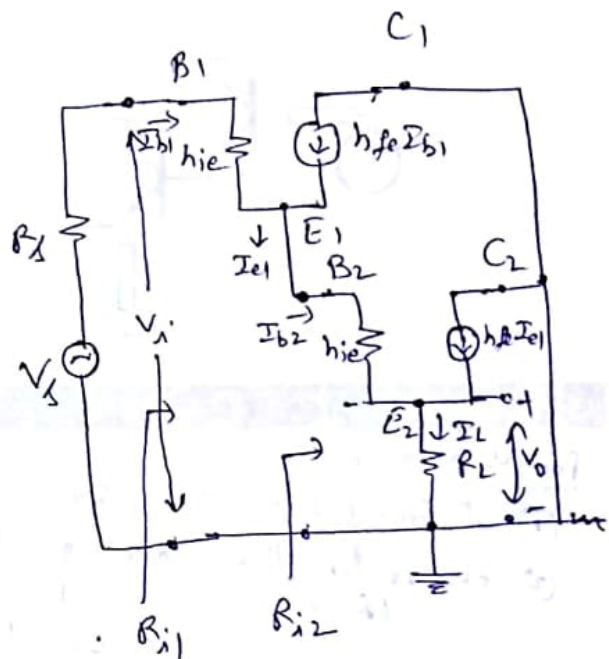 C1
B1
Ib1
hie
hfe Ib1
Rs
E1
Ie1
B2
C2
Ib2
hie
hfe Ie1
Vi
Vs
+
E2
IL
RL
Vo
-
Ri1
Ri2